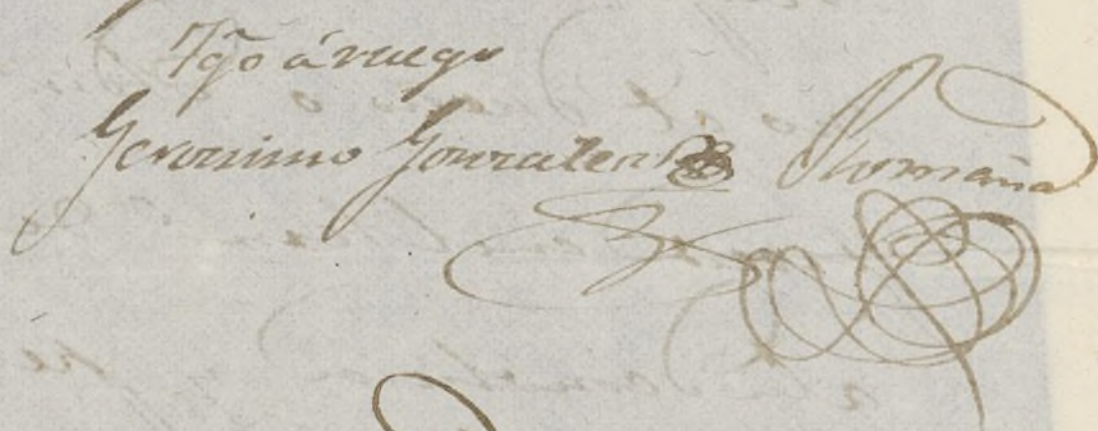 Tgõ á ruego
Geronimo Gonzalez Romaña